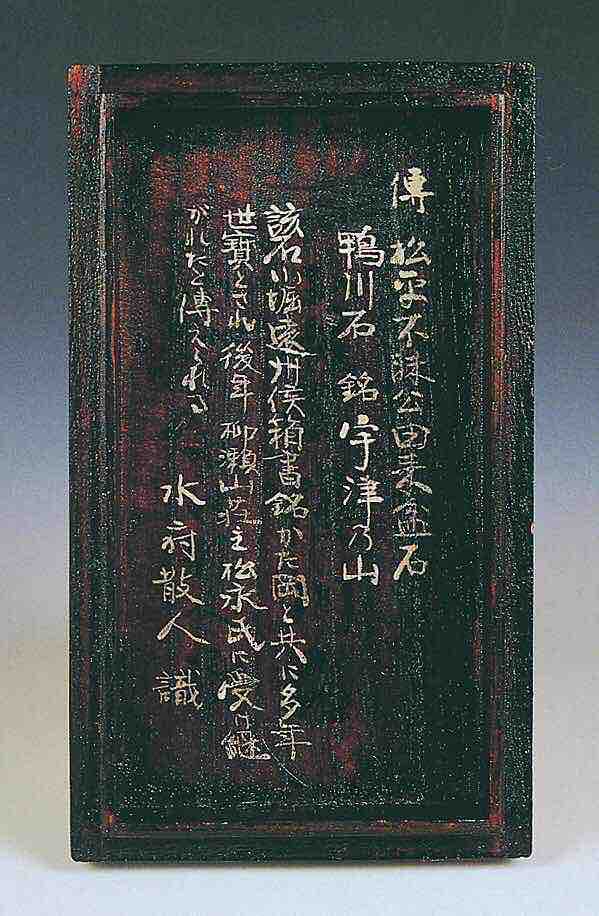 傳 松平不昧公由来盆石
鴨川石 銘 宇津乃山
該石小堀遠州侯箱書銘かた岡と共に多年
世寶とされ後年柳瀬山荘主松永氏に愛け継
がれたと傳へられる
水府散人 識